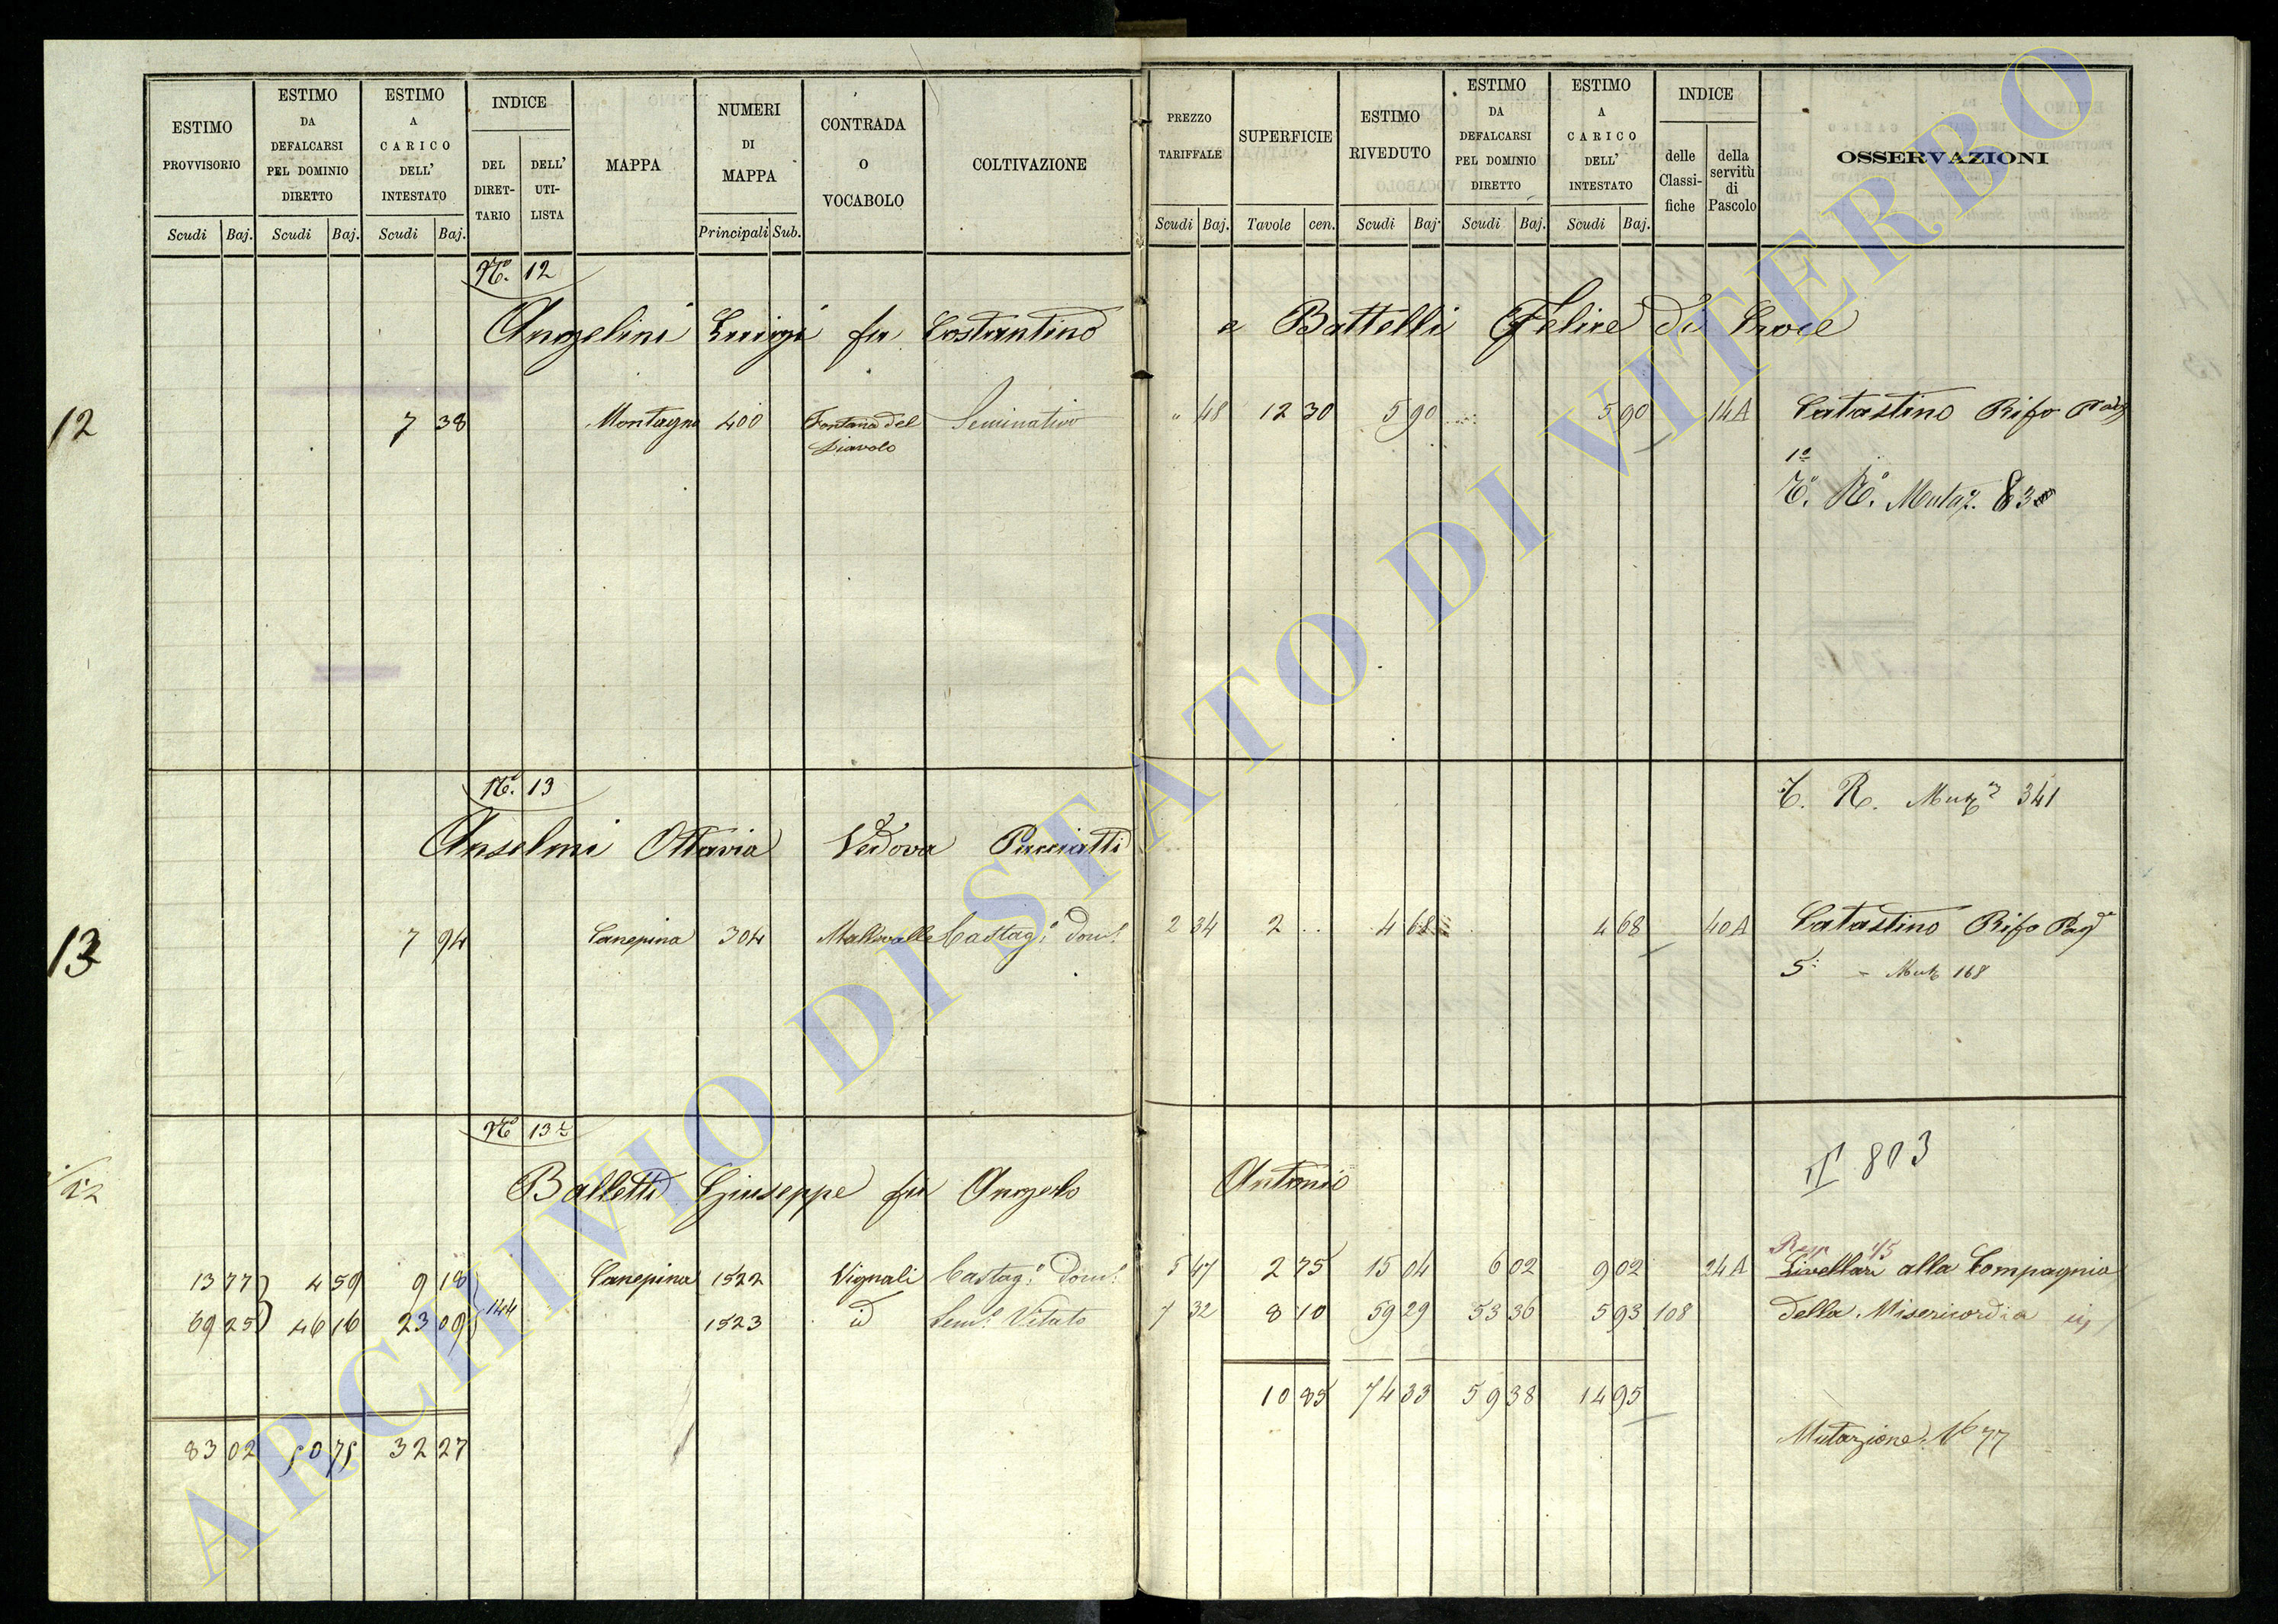 ESTIMO PROVVISORIO Scudi Baj.
ESTIMO DA DEFALCARSI PEL DOMINIO DIRETTO Scudi Baj.
ESTIMO A CARICO DELL' INTESTATO Scudi Baj.
INDICE DEL DIRET-TARIO DELL' UTI-LISTA
MAPPA
NUMERI DI MAPPA Principali Sub.
CONTRADA O VOCABOLO
COLTIVAZIONE
PREZZO TARIFFALE Scudi Baj.
SUPERFICIE Tavole cen.
ESTIMO RIVEDUTO Scudi Baj.
ESTIMO DA DEFALCARSI PEL DOMINIO DIRETTO Scudi Baj.
ESTIMO A CARICO DELL' INTESTATO Scudi Baj.
INDICE delle Classi-fiche della servitù di Pascolo
OSSERVAZIONI
Nº. 12
Angelini Luigi fu Costantino e Battelli Felice di Croce
12 7 38 Montagna 400 Fontana del Seminativo " 48 12 30 5 90 5 90 14A Catastino Rifo
Diavolo 1º
Mutaz. 83
Nº. 13
T. R. Mutz 341
Anselmi Ottavia Vedova Pucciatti
13 7 94 Canepina 304 Mallevalle Castag. dom. 2 34 2 .. 4 68 4 68 40A Catastino Rifo Pag
5: - Mutz 168
Nº 13½
803
Balletti Giuseppe fu Angelo Antonio
13 77 4 59 9 18 144 Canepina 1522 Vignali Castag. dom. 5 47 2 75 15 04 6 02 9 02 24A Livellari alla Compagnia
69 25 46 16 23 09 1523 id Sem. Vitato 7 32 8 10 59 29 53 36 5 93 108 della Misericordia
10 85 74 33 59 38 14 95
83 02 50 75 32 27
Mutazione Nº 77
ARCHIVIO DI STATO DI VITERBO